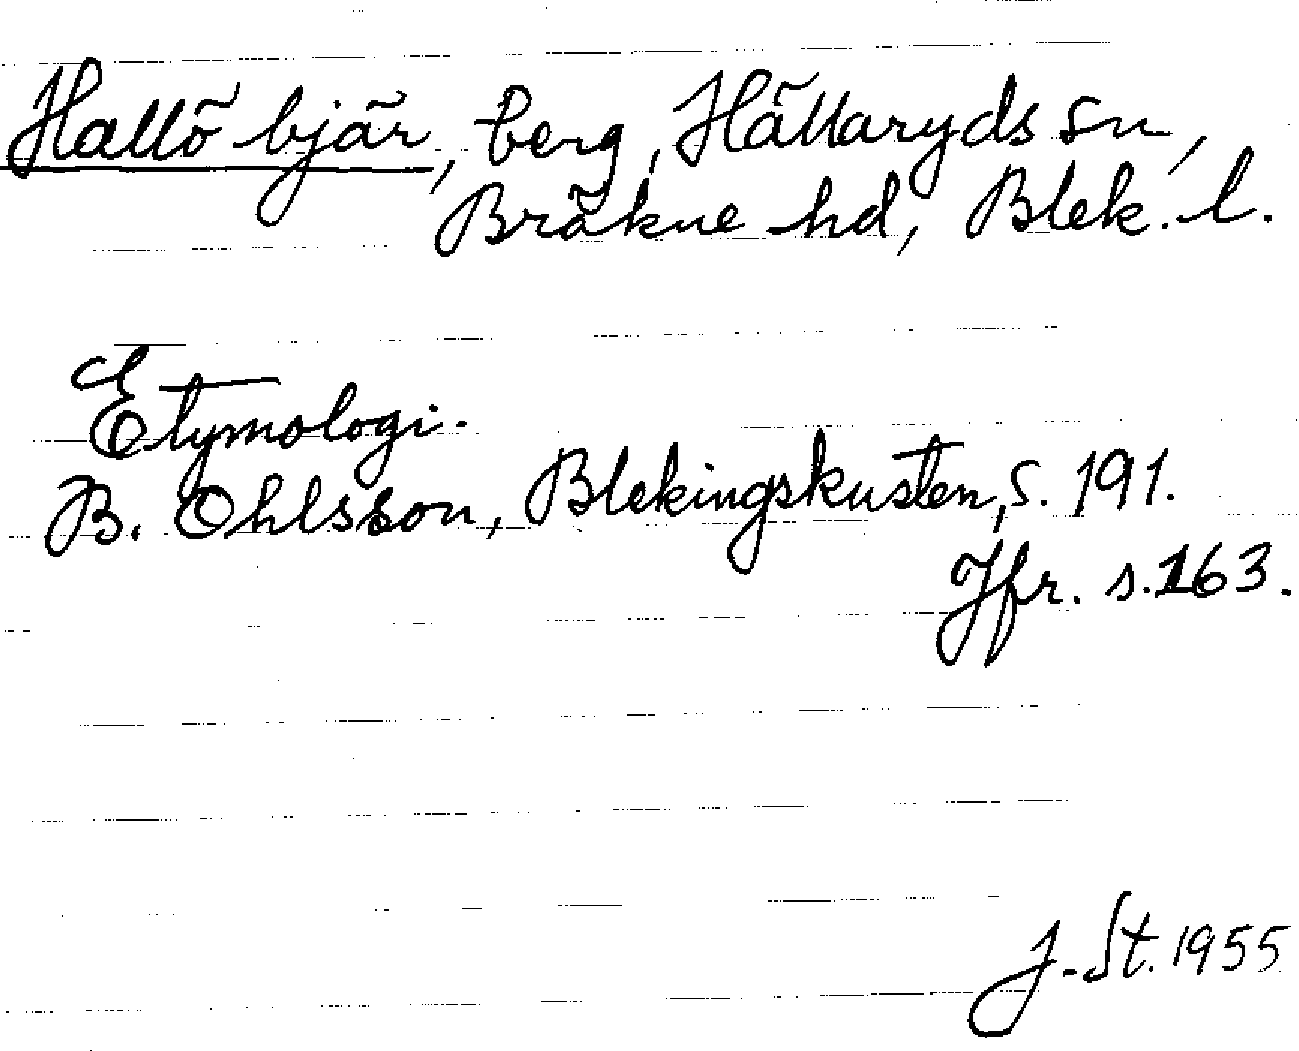 Hallö bjär, berg, Hällaryds sn,
Bräkne hd, Blek. l.
Etymologi.
B. Ohlsson, Blekingskusten, s. 191.
Jfr. s. 163.
J. St. 1955